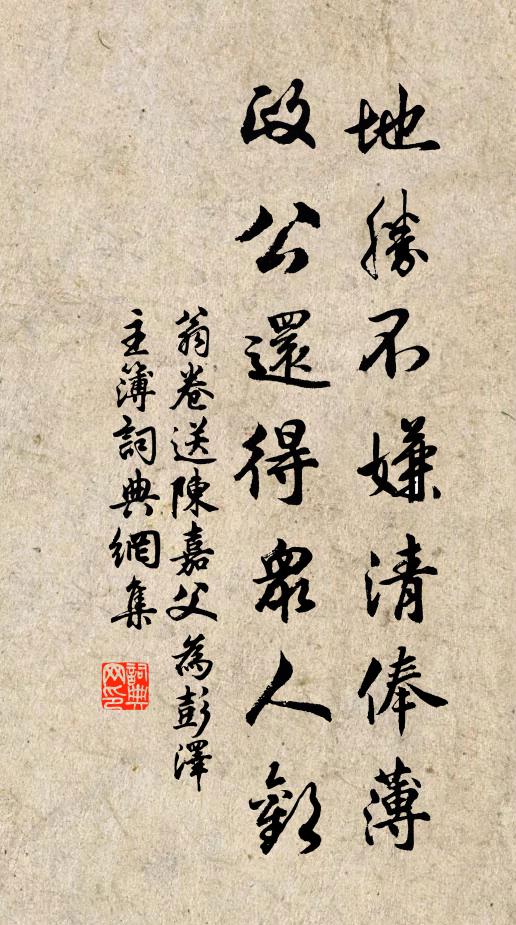 地勝不嫌清俸薄
政公還得眾人歡
翁卷送陳嘉父為彭澤
主簿詞典網集
詞典
网印